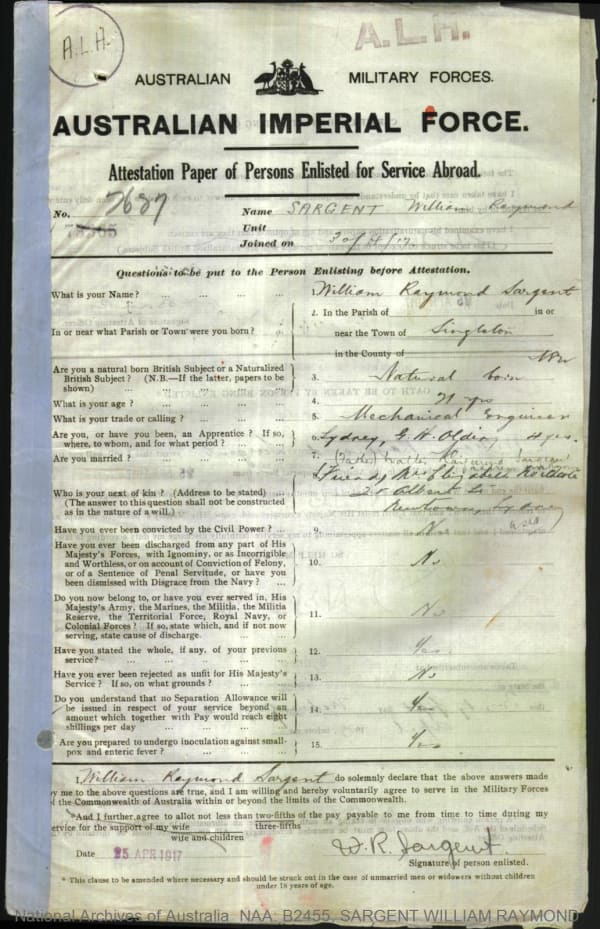 A.L.H.
A.L.H.
AUSTRALIAN MILITARY FORCES.
AUSTRALIAN IMPERIAL FORCE.
Attestation Paper of Persons Enlisted for Service Abroad.
No. 7687
Name SARGENT William Raymond
Unit
Joined on 30/4/17
Questions to be put to the Person Enlisting before Attestation.
What is your Name? ... ... ... ...
1. William Raymond Sargent
In or near what Parish or Town were you born? ...
2. In the Parish of in or
near the Town of Singleton
in the County of NSW
Are you a natural born British Subject or a Naturalized
British Subject? (N.B.—If the latter, papers to be
shown) ... ... ... ...
3. Natural born
What is your age? ... ... ... ...
4. 21 yrs
What is your trade or calling? ... ... ...
5. Mechanical Engineer
Are you, or have you been, an Apprentice? If so,
where, to whom, and for what period? ... ...
6. Sydney, G. H. Olding 4 yrs.
Are you married? ... ... ... ...
7.
(Father) Walter Sargent
Who is your next of kin? (Address to be stated) ...
(The answer to this question shall not be construed
as in the nature of a will.)
8. Friend, Mrs Elizabeth
Albert St
Newtown, Sydney
NSW
Have you ever been convicted by the Civil Power? ...
9. No
Have you ever been discharged from any part of His
Majesty's Forces, with Ignominy, or as Incorrigible
and Worthless, or on account of Conviction of Felony,
or of a Sentence of Penal Servitude, or have you
been dismissed with Disgrace from the Navy? ...
10. No
Do you now belong to, or have you ever served in, His
Majesty's Army, the Marines, the Militia, the Militia
Reserve, the Territorial Force, Royal Navy, or
Colonial Forces? If so, state which, and if not now
serving, state cause of discharge. ... ...
11. No
Have you stated the whole, if any, of your previous
service? ... ... ... ...
12. Yes
Have you ever been rejected as unfit for His Majesty's
Service? If so, on what grounds? ... ...
13. No
Do you understand that no Separation Allowance will
be issued in respect of your service beyond an
amount which together with Pay would reach eight
shillings per day ... ... ...
14. Yes
Are you prepared to undergo inoculation against small-
pox and enteric fever? ... ... ...
15. Yes
I, William Raymond Sargent do solemnly declare that the above answers made
by me to the above questions are true, and I am willing and hereby voluntarily agree to serve in the Military Forces
of the Commonwealth of Australia within or beyond the limits of the Commonwealth.
*And I further agree to allot not less than two-fifths of the pay payable to me from time to time during my
three-fifths
service for the support of my wife
wife and children
Date 25 APR 1917
W. R. Sargent.
Signature of person enlisted.
* This clause to be amended where necessary and should be struck out in the case of unmarried men or widowers without children
under 18 years of age.
National Archives of Australia NAA: B2455, SARGENT WILLIAM RAYMOND